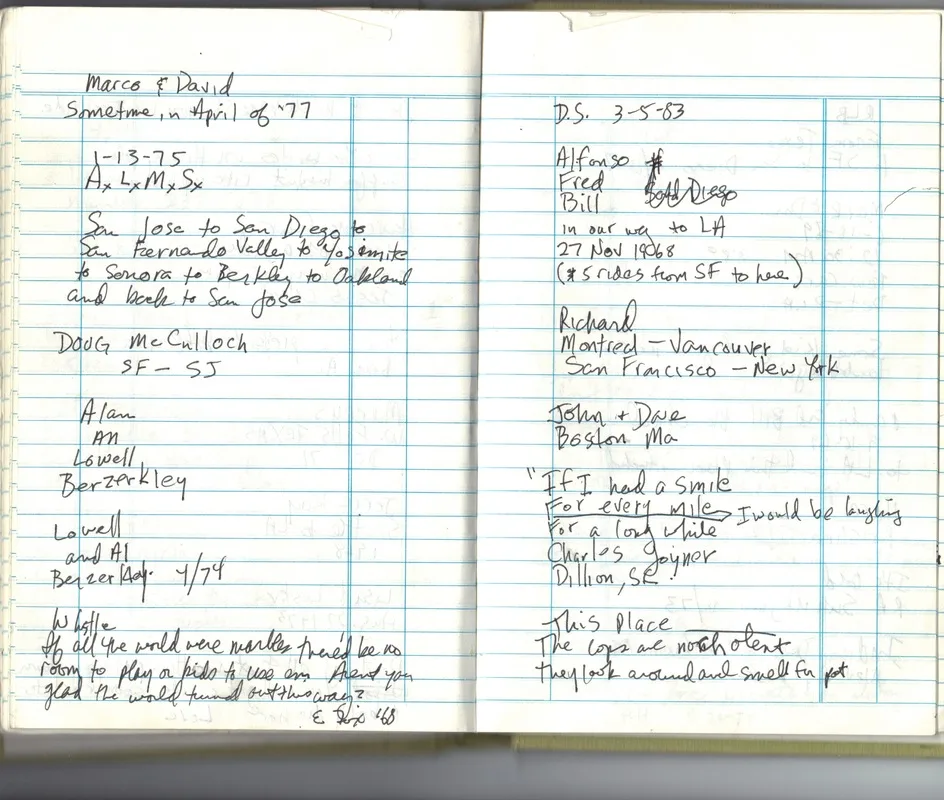 Marco & David
Sometime, in April of '77
1-13-75
A× L× M× S×
San Jose to San Diego to
San Fernando Valley to Yosimite
to Sonora to Berkley to Oakland
and back to San Jose
DOUG McCulloch
SF - SJ
Alan
An
Lowell
Berzerkley
Lowell
and Al
4/74
Whistle
If all the world were marbles there'd be no
room to play or kids to use em Arent you
glad the world turned out this way?
'68
D.S. 3-5-83
Alfonso
Fred
Bill Diego
in our way to LA
27 Nov 1968
(* 5 rides from SF to here)
Richard
Montreal - Vancouver
San Francisco - New York
John + Dave
Boston Ma
"If I had a smile
For every mile I would be laughing
For a long while
Charles Joyner
Dillion, SC.
This Place
The cops are
they look around and smell for pot